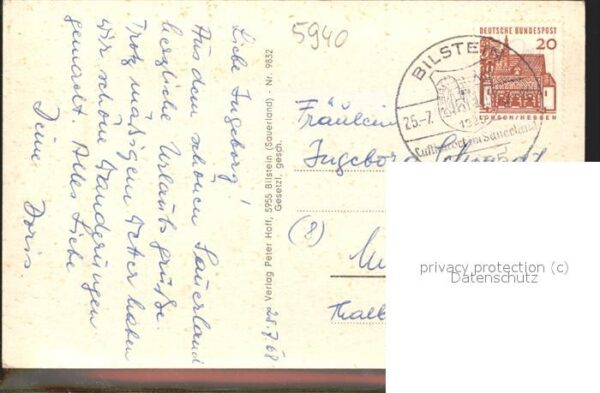 5940
Liebe Ingeborg!
Aus dem schönen Sauerland
herzliche Urlaubsgrüße.
Trotz mäßigem Wetter haben
wir schöne Wanderungen
gemacht. Alles Liebe
Deine Doris.
Verlag Peter Hoff, 5955 Bilstein (Sauerland) - Nr. 9852
Gesetzl. gesch.
25.7.68
DEUTSCHE BUNDESPOST
20
LORSCH/HESSEN
BILSTEIN
25.-7.
Luftkurort im Sauerland
Fräulein
Ingeborg
(8)
privacy protection (c)
Datenschutz